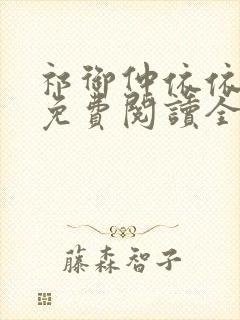 祁御仲依依
免費閱讀全
藤森智子